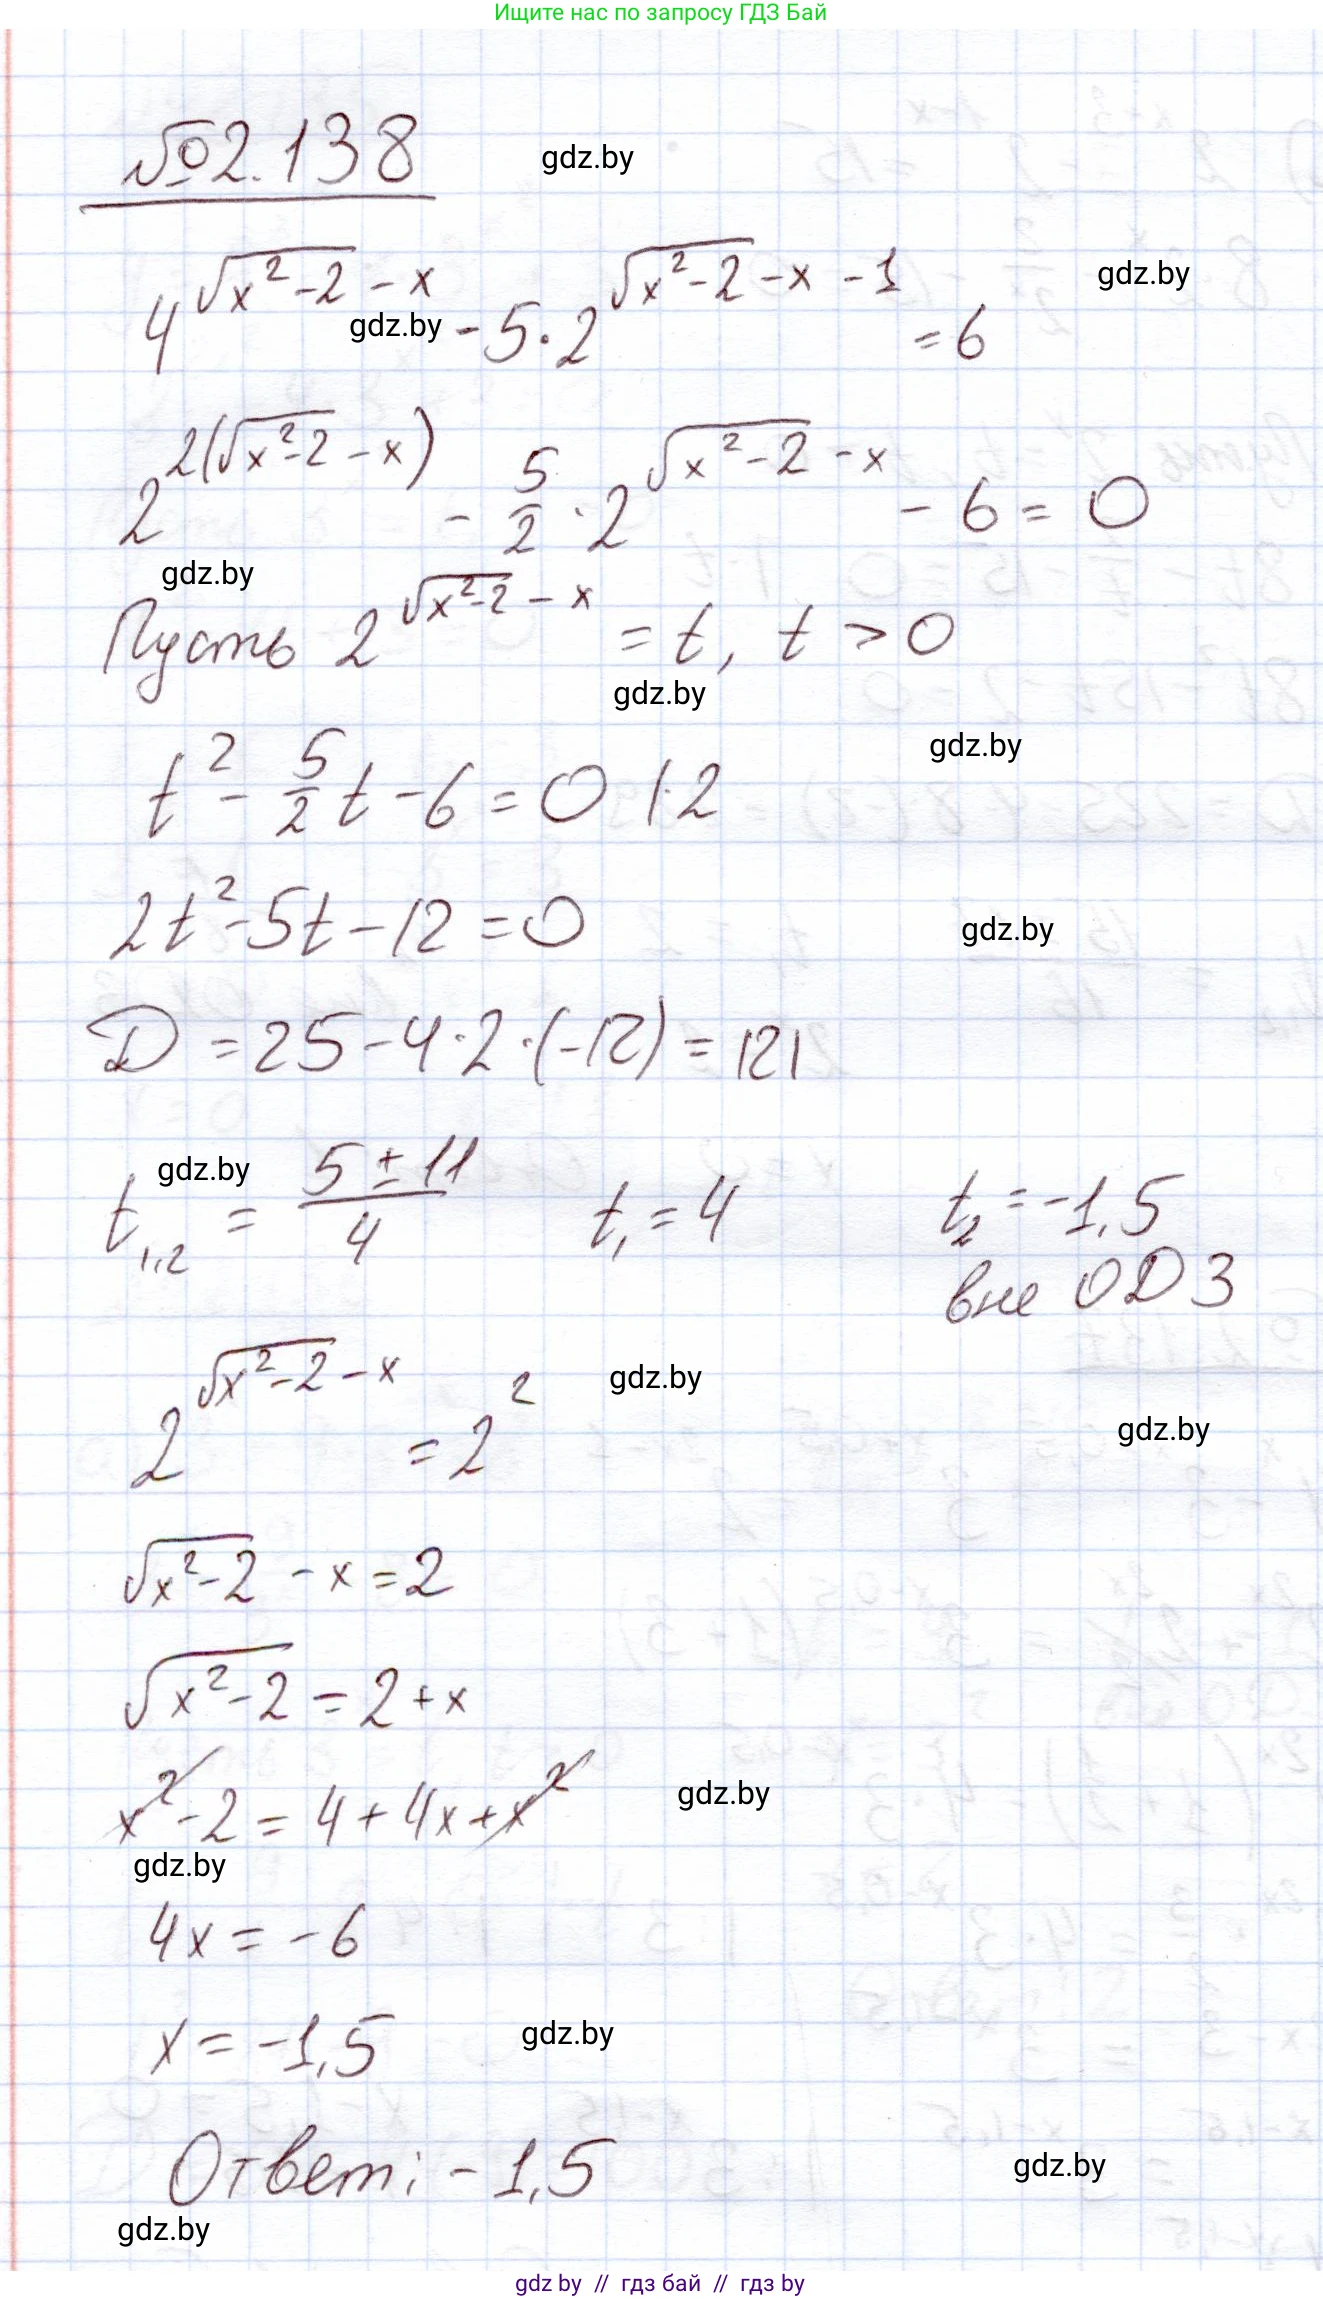 Ищите нас по запросу ГДЗ Бай
№2.138
gdz.by
4^(√(x²-2) - x) - 5·2^(√(x²-2) - x - 1) = 6
gdz.by
gdz.by
2^(2(√(x²-2) - x)) - 5/2 · 2^(√(x²-2) - x) - 6 = 0
gdz.by
Пусть 2^(√(x²-2) - x) = t, t > 0
gdz.by
gdz.by
t² - 5/2 t - 6 = 0 |·2
2t² - 5t - 12 = 0
gdz.by
D = 25 - 4·2·(-12) = 121
gdz.by
t1,2 = (5 ± 11)/4 t1 = 4 t2 = -1,5
вне ОДЗ
2^(√(x²-2) - x) = 2²
gdz.by
gdz.by
√(x²-2) - x = 2
√(x²-2) = 2 + x
x² - 2 = 4 + 4x + x²
gdz.by
gdz.by
4x = -6
x = -1,5
gdz.by
Ответ: -1,5
gdz.by
gdz.by
gdz by // гдз бай // гдз by